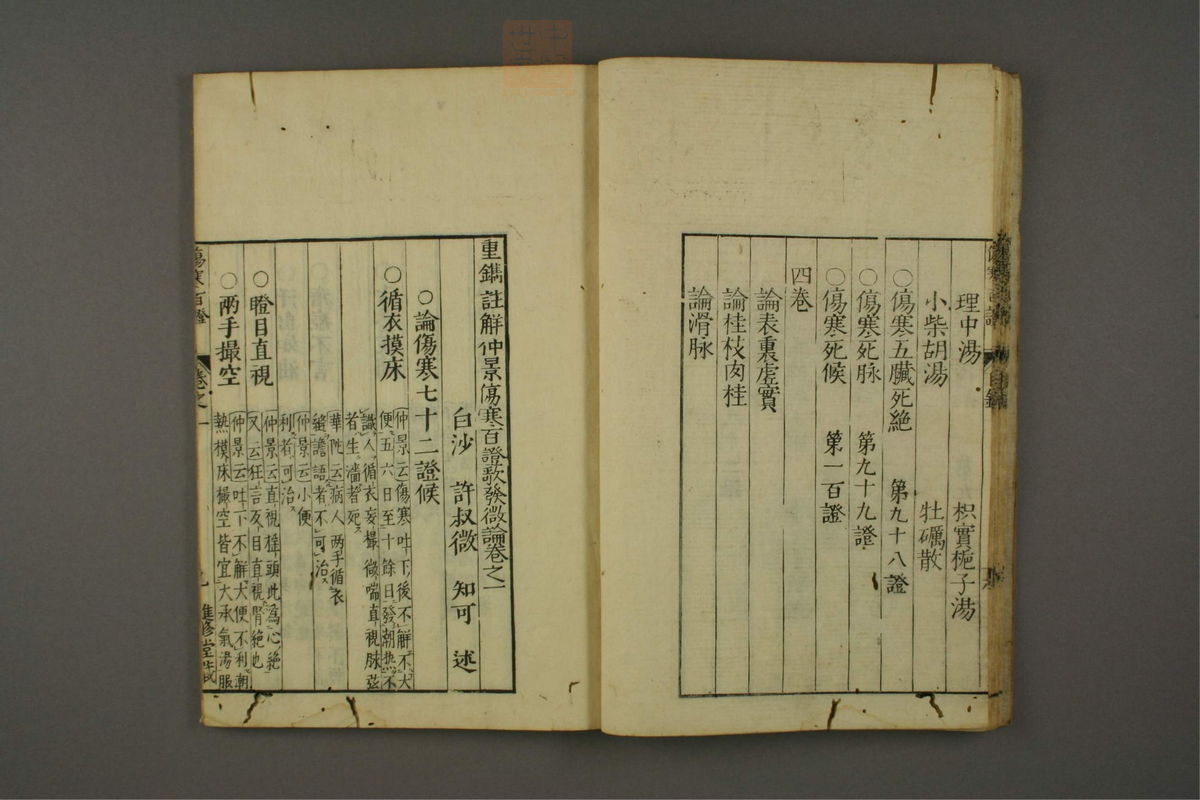 理中湯 枳實梔子湯
小柴胡湯 牡礪散
○傷寒五臟死絶 第九十八證
○傷寒死脉 第九十九證
○傷寒死候 第一百證
四巻
論表裏虛實
論桂枝肉桂
論滑脉
重鐫註解仲景傷寒百證歌發微論卷之一
白沙 許叔微 知可 述
○論傷寒七十二證候
○循衣摸床
仲景云傷寒吐下後不解不大
便五六日至十餘日發潮熱不
識人循衣妄撮微喘直視脉弦
者生濇者死
華陀云病人兩手循衣
縫譫語者不可治
仲景云小便
利者可治
○瞪目直視
仲景云直視摇頭此為心絶
又云狂言反目直視腎絶也
○兩手撮空
仲景云吐下不解大便不利朝
熱模床撮空皆宜大承氣湯服
傷寒百證 卷之一